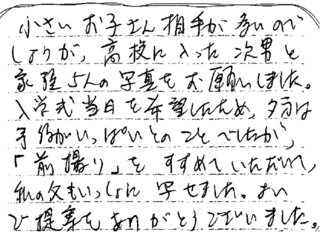 小さいお子さん相手が多いので
しょうが、高校に入った次男と
家族5人の写真をお願いしました。
入学式当日を希望したため、夕方は
予約がいっぱいとのことでしたが、
「前撮り」をすすめていただいて、
私の父もいっしょに写せました。よい
ご提案をありがとうございました。